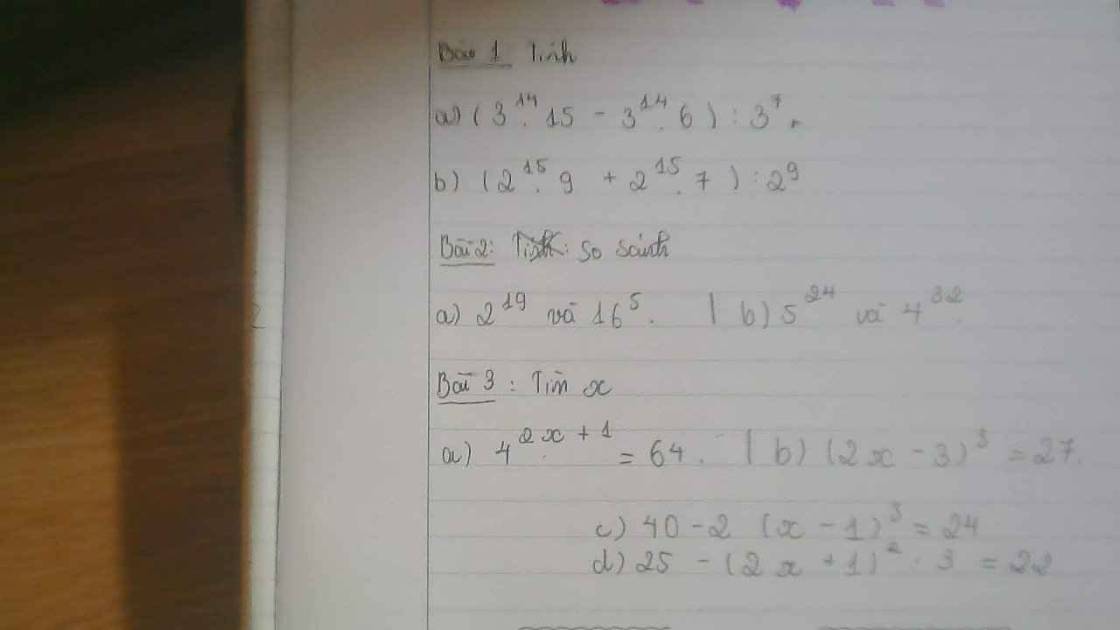 Bài 1 Tính
a) (3¹⁴ . 15 - 3¹⁴ . 6) : 3⁷
b) (2¹⁵ . 9 + 2¹⁵ . 7) : 2⁹
Bài 2: So sánh
a) 2¹⁹ và 16⁵. | b) 5²⁴ và 4³²
Bài 3 : Tìm x
a) 4²ˣ⁺¹ = 64. | b) (2x - 3)³ = 27.
c) 40 - 2 (x - 1)³ = 24
d) 25 - (2x + 1)² . 3 = 22